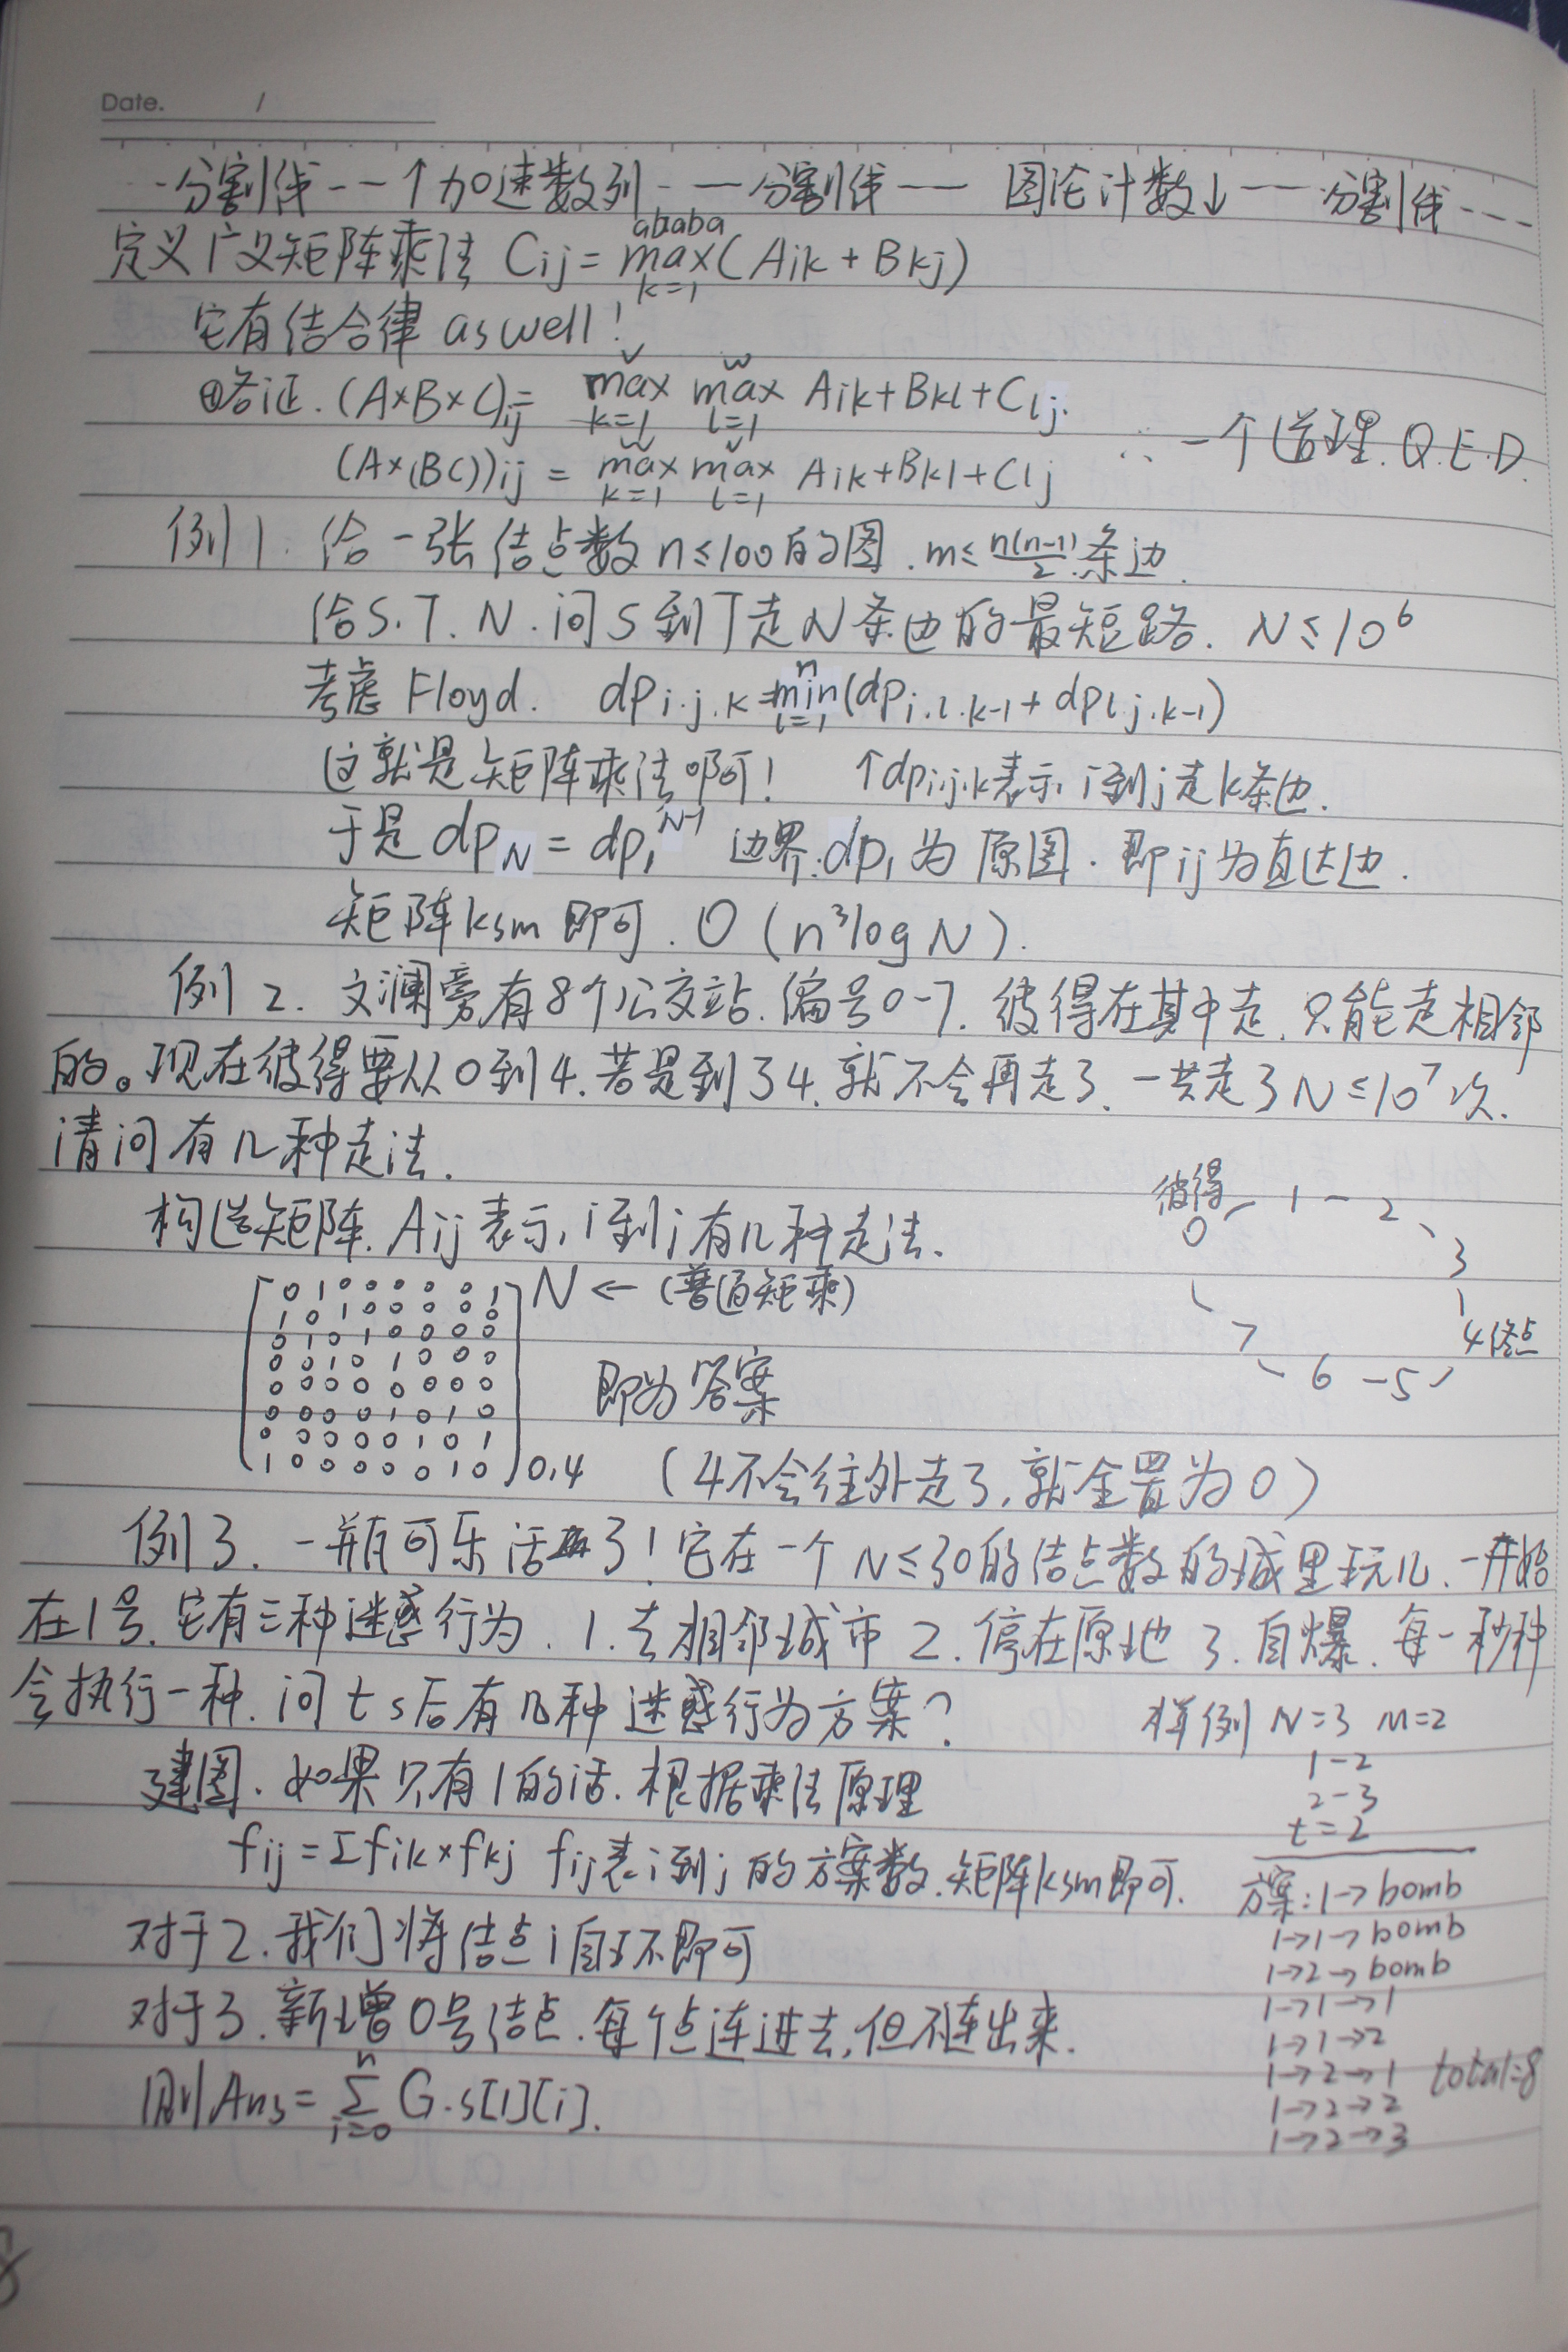 Date. /
--分割线---↑加速数列---分割线---图论计数↓---分割线---
定义广义矩阵乘法 Cij = max(Aik + Bkj)
ababa
k=1
它有结合律 as well!
略证. (A×B×C)ij = max k=1 v max l=1 w Aik+Bkl+Clj.
(A×(BC))ij = max k=1 max l=1 v Aik+Bkl+Clj
∴ 一个道理. Q.E.D.
例1. 给一张结点数 n≤100的图. m≤ n(n-1)/2 条边.
给S.T.N.问S到T走N条边的最短路. N≤10^6
考虑 Floyd. dp i.j.k = min l=1 n (dp i.l.k-1 + dp l.j.k-1)
这就是矩阵乘法啊! ↑dp i.j.k表示i到j走k条边.
于是 dp_N = dp_1^N-1 边界:dp_1为原图.即ij为直达边.
矩阵ksm即可. O(n^3 log N).
例2. 文澜旁有8个公交站.编号0-7.彼得在其中走.只能走相邻
的。现在彼得要从0到4.若是到了4.就不会再走了.一共走了N≤10^7次.
请问有几种走法.
构造矩阵. Aij表示i到j有几种走法.
彼得
0 - 1 - 2
3
4终点
7 - 6 - 5
0 1 0 0 0 0 0 1
1 0 1 0 0 0 0 0
0 1 0 1 0 0 0 0
0 0 1 0 1 0 0 0
0 0 0 0 0 0 0 0
0 0 0 0 1 0 1 0
0 0 0 0 0 1 0 1
1 0 0 0 0 0 1 0
N ← (普通矩乘)
即为答案
0,4 (4不会往外走了,就全置为0)
例3. 一瓶可乐活了!它在一个N≤30的结点数的城里玩儿.一开始
在1号.它有三种迷惑行为. 1.去相邻城市 2.停在原地 3.自爆.每一秒种
会执行一种.问 t s后有几种迷惑行为方案?
建图.如果只有1的话.根据乘法原理
fij = Σfik×fkj fij表i到j的方案数.矩阵ksm即可.
对于2.我们将结点i自环即可
对于3.新增0号结点.每个点连进去,但不连出来.
则Ans = Σ i=0 n G.s[1][i].
样例 N=3 M=2
1-2
2-3
t=2
方案:1→bomb
1→1→bomb
1→2→bomb
1→1→1
1→1→2
1→2→1 total=8
1→2→2
1→2→3
8